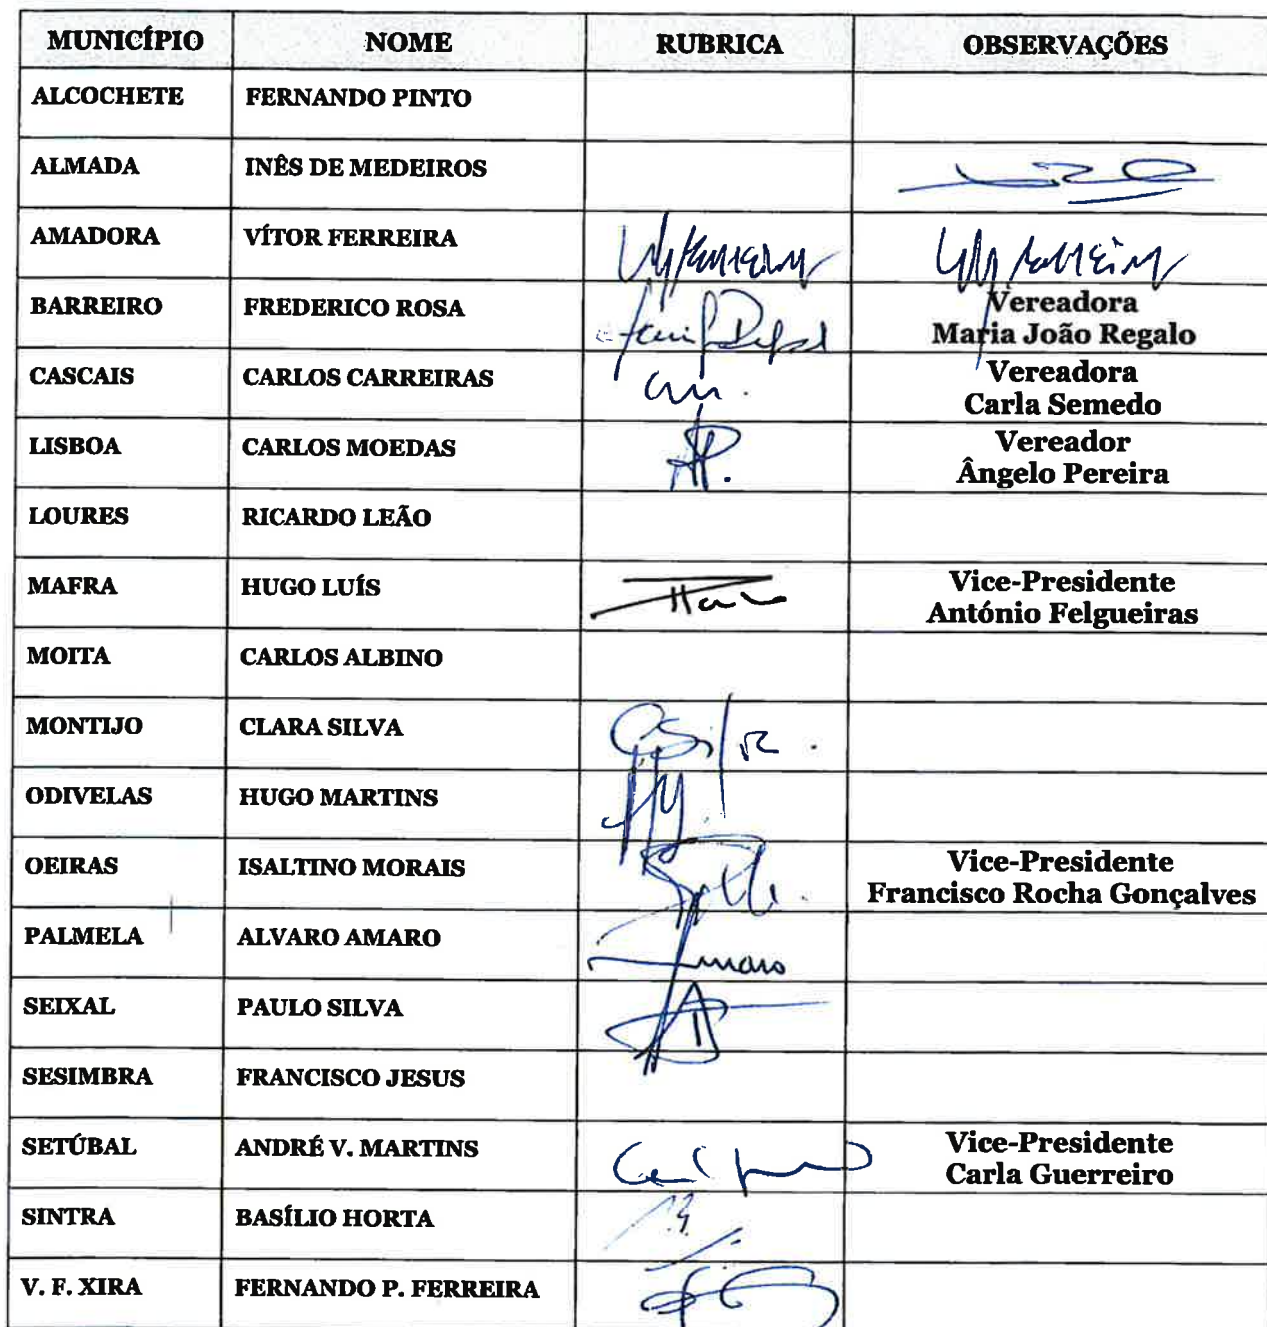 MUNICÍPIO NOME RUBRICA OBSERVAÇÕES
ALCOCHETE FERNANDO PINTO
ALMADA INÊS DE MEDEIROS
AMADORA VÍTOR FERREIRA
BARREIRO FREDERICO ROSA Vereadora
Maria João Regalo
CASCAIS CARLOS CARREIRAS Vereadora
Carla Semedo
LISBOA CARLOS MOEDAS Vereador
Ângelo Pereira
LOURES RICARDO LEÃO
MAFRA HUGO LUÍS Vice-Presidente
António Felgueiras
MOITA CARLOS ALBINO
MONTIJO CLARA SILVA
ODIVELAS HUGO MARTINS
OEIRAS ISALTINO MORAIS Vice-Presidente
Francisco Rocha Gonçalves
PALMELA ALVARO AMARO
SEIXAL PAULO SILVA
SESIMBRA FRANCISCO JESUS
SETÚBAL ANDRÉ V. MARTINS Vice-Presidente
Carla Guerreiro
SINTRA BASÍLIO HORTA
V. F. XIRA FERNANDO P. FERREIRA